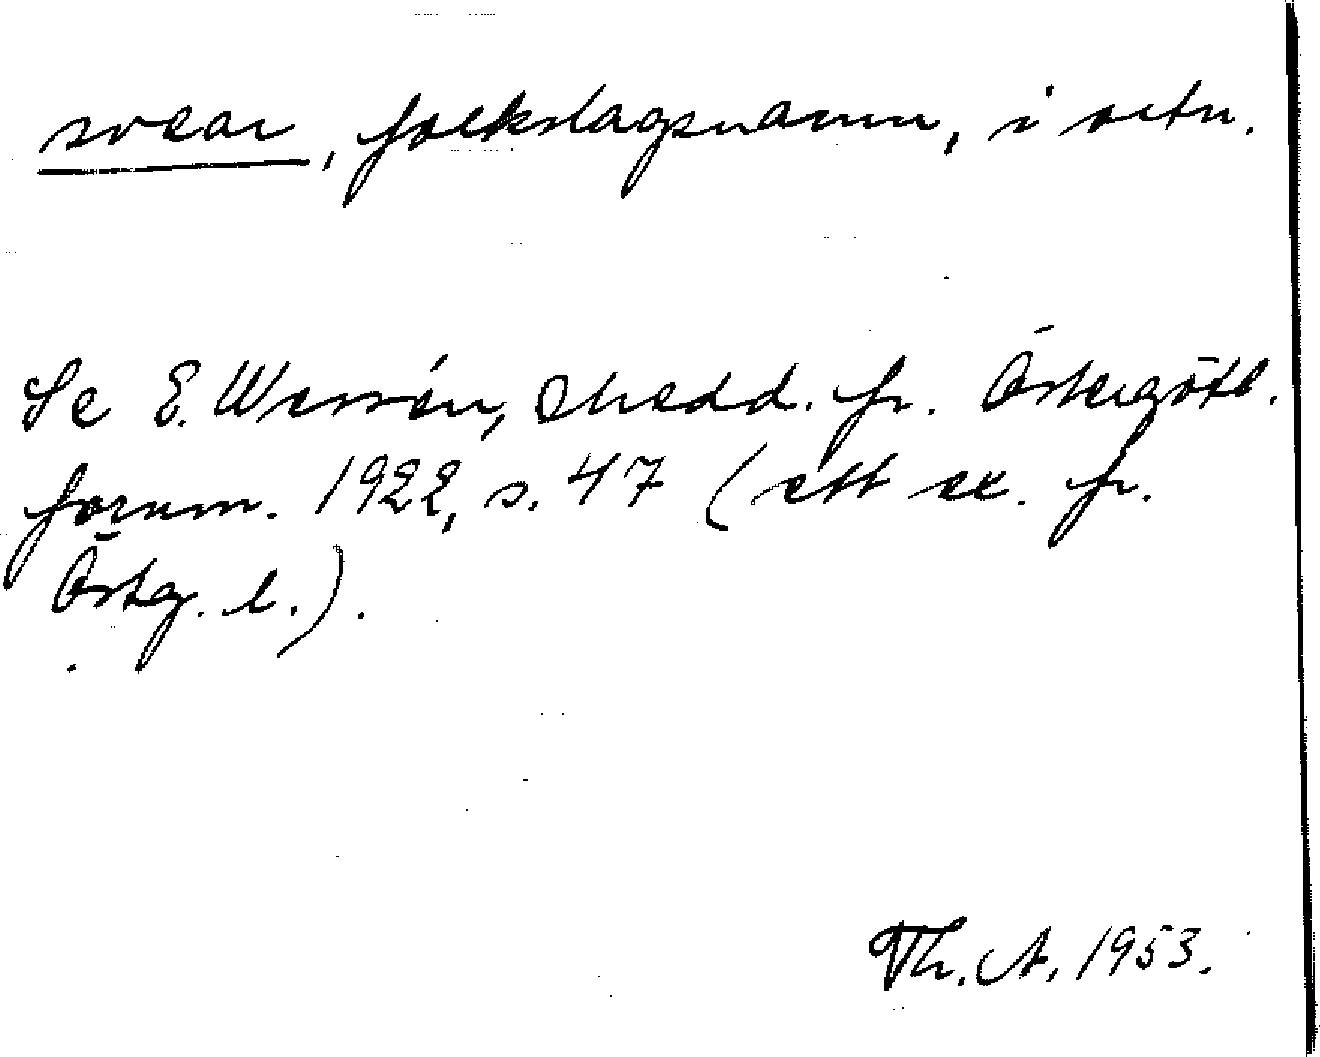 svear, folkslagsnamn, i ortn.
Se E. Wessén, Medd. fr. Östergötl.
fornm. 1922, s. 47 (ett ex. fr.
Östg. l.).
Th. A. 1953.